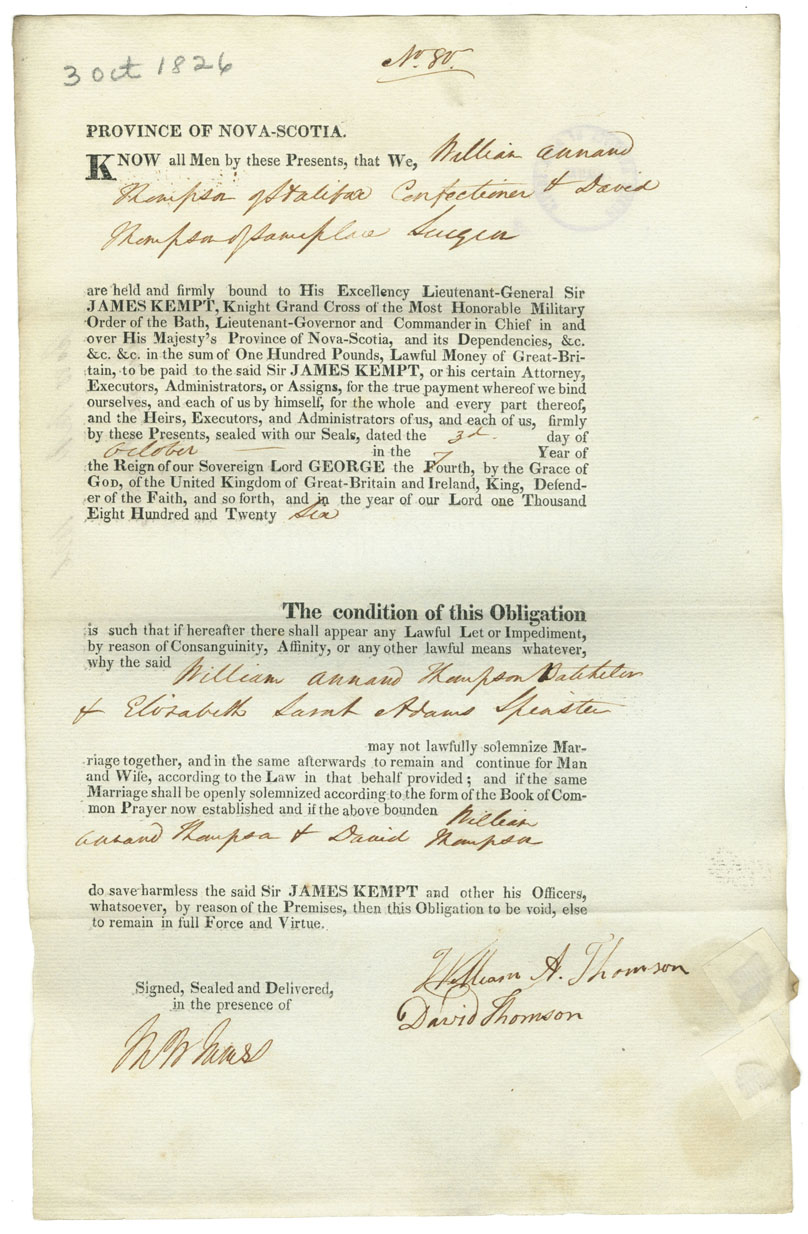 3 Oct 1826
No. 80.
PROVINCE OF NOVA-SCOTIA.
KNOW all Men by these Presents, that We, William Annand
Thompson of Halifax Confectioner & David
Thompson of same place
are held and firmly bound to His Excellency Lieutenant-General Sir
JAMES KEMPT, Knight Grand Cross of the Most Honorable Military
Order of the Bath, Lieutenant-Governor and Commander in Chief in and
over His Majesty's Province of Nova-Scotia, and its Dependencies, &c.
&c. &c. in the sum of One Hundred Pounds, Lawful Money of Great-Bri-
tain, to be paid to the said Sir JAMES KEMPT, or his certain Attorney,
Executors, Administrators, or Assigns, for the true payment whereof we bind
ourselves, and each of us by himself, for the whole and every part thereof,
and the Heirs, Executors, and Administrators of us, and each of us, firmly
by these Presents, sealed with our Seals, dated the 3d. day of
October — in the 7 Year of
the Reign of our Sovereign Lord GEORGE the Fourth, by the Grace of
GOD, of the United Kingdom of Great-Britain and Ireland, King, Defend-
er of the Faith, and so forth, and in the year of our Lord one Thousand
Eight Hundred and Twenty Six
The condition of this Obligation
is such that if hereafter there shall appear any Lawful Let or Impediment,
by reason of Consanguinity, Affinity, or any other lawful means whatever,
why the said William Annand Thompson Batchelor
& Elizabeth Sarah Adams Spinster
may not lawfully solemnize Mar-
riage together, and in the same afterwards to remain and continue for Man
and Wife, according to the Law in that behalf provided; and if the same
Marriage shall be openly solemnized according to the form of the Book of Com-
mon Prayer now established and if the above bounden William
Annand Thompson & David Thompson
do save harmless the said Sir JAMES KEMPT and other his Officers,
whatsoever, by reason of the Premises, then this Obligation to be void, else
to remain in full Force and Virtue.
William A. Thomson
David Thomson
Signed, Sealed and Delivered,
in the presence of